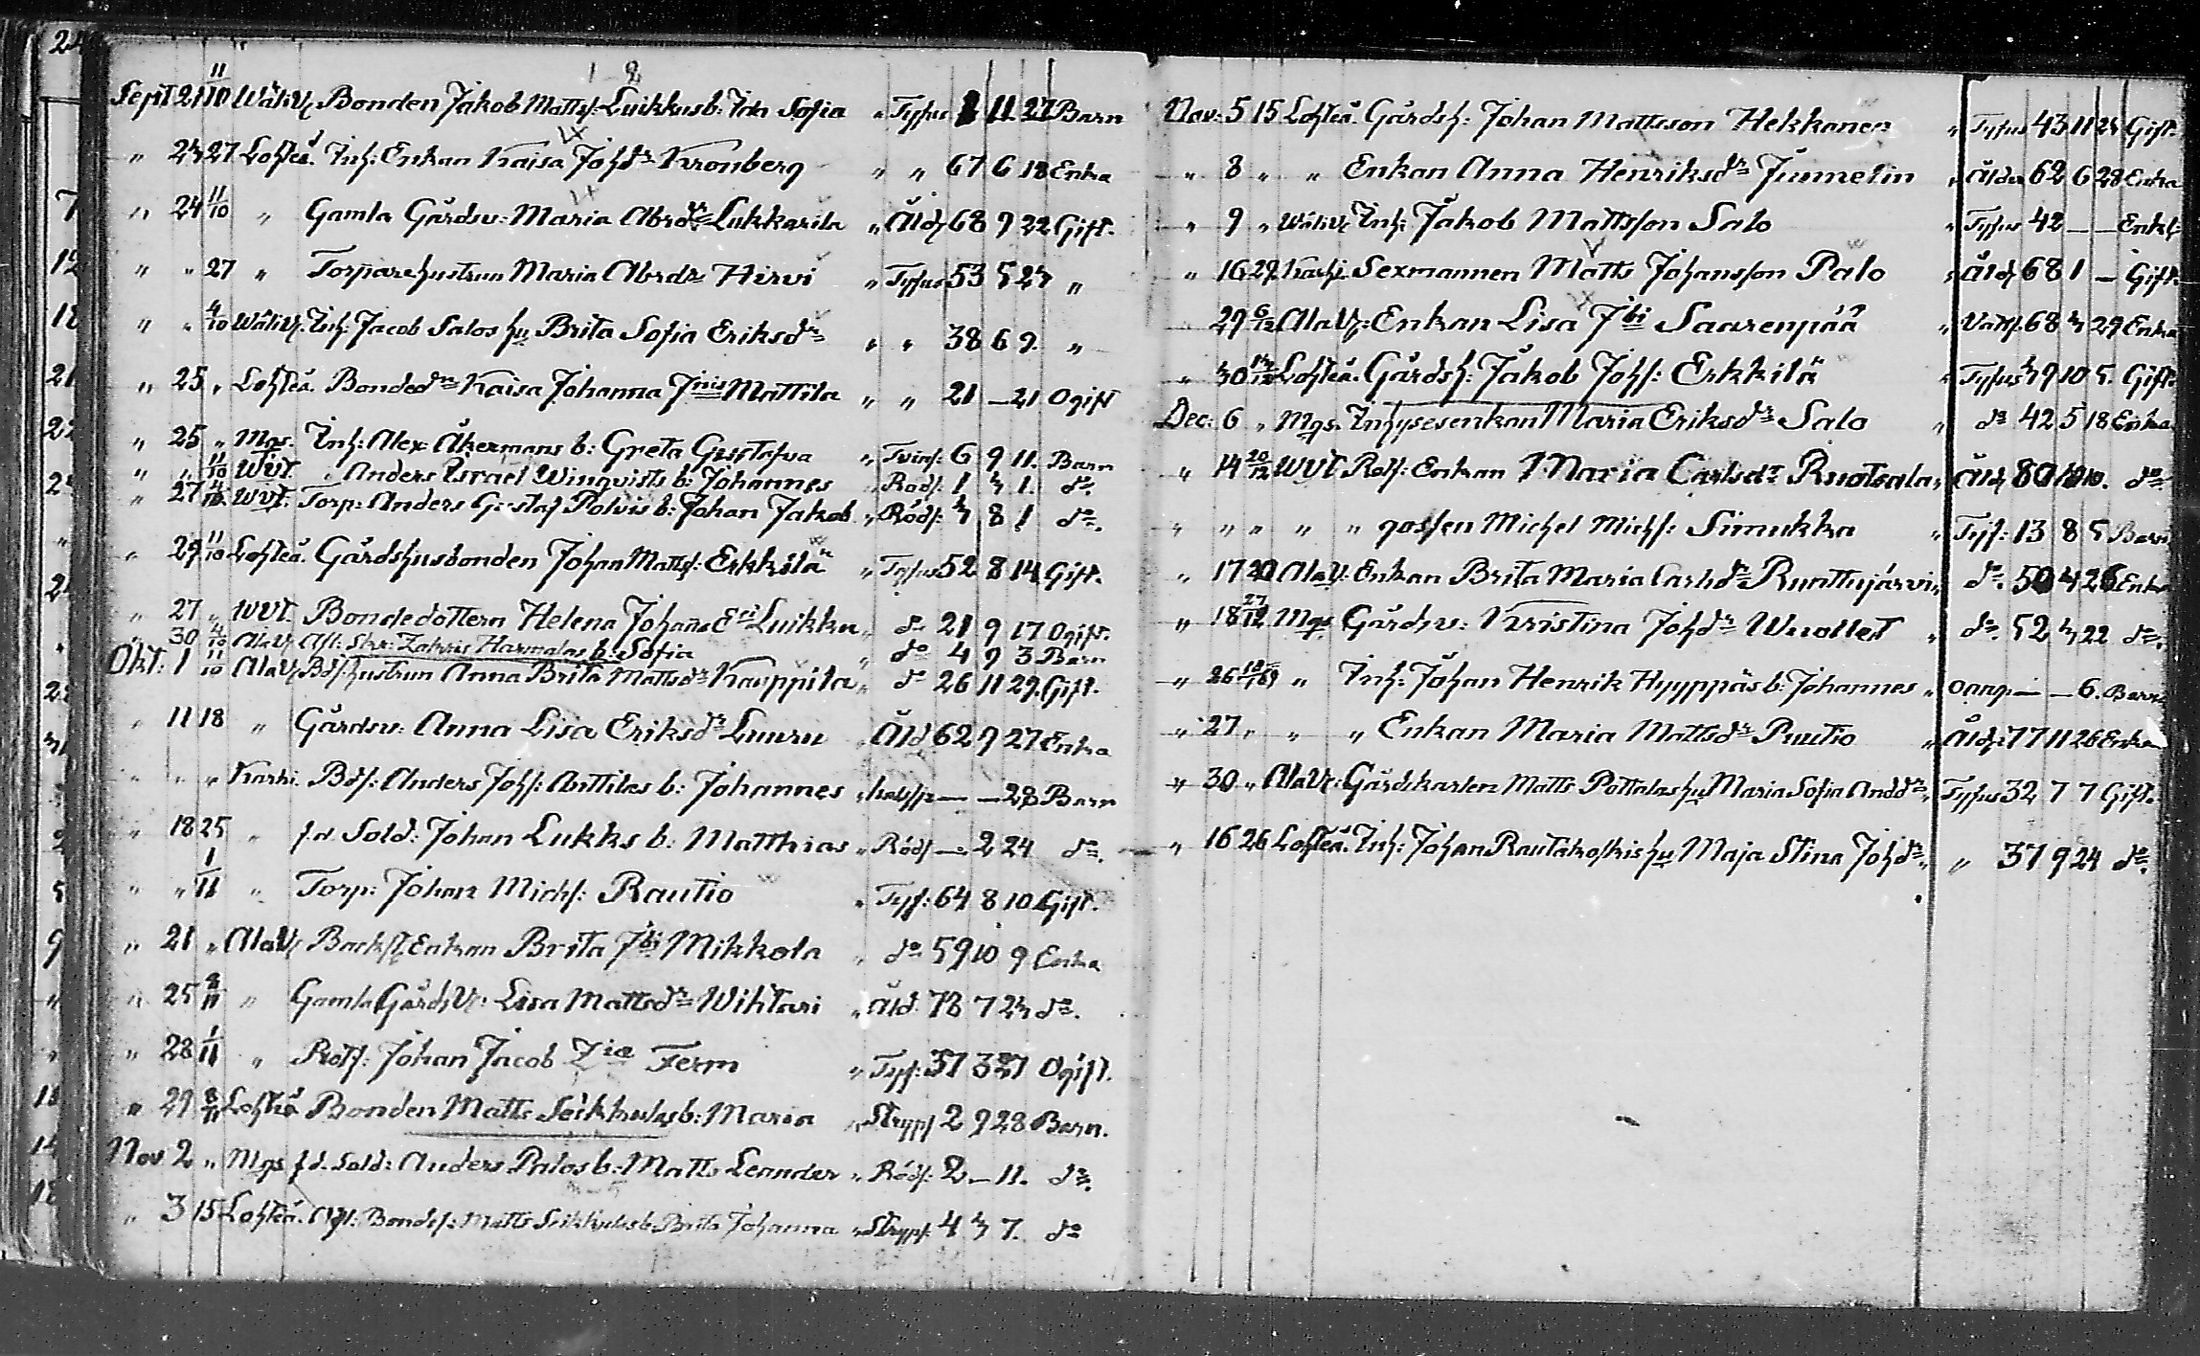 1 - 2
Sept 21 11/10 WäliVt. Bonden Jakob Matts: Luikkus b: Ida Sofia " Tyfus 2 11 27 Barn
" 23 27 Lohteå. Inh: Enkan Kaisa Johdr Kronberg " " 67 6 18 Enka
" 24 11/10 " Gamla Gårdsv: Maria Abrdr Lukkarila " Åld 68 9 22 Gift.
" " 27 " Torparehustrun Maria Abrdr Hirvi " Tyfus 53 5 23 "
" " 4/10 WäliVt. Inh: Jacob Salos hu Brita Sofia Eriksdr " " 38 6 9. "
" 25 " Lohteå Bondedr Kaisa Johanna Jnis Mattila " " 21 – 21 Ogift
" 25 " Mgs. Inh: Alex Åkermans b: Greta Gustafva " Tvins: 6 9 11. Barn
" " 11/10 WVt. " Anders Israel Winqvists b: Johannes " Röds: 1 3 1. do.
" 27 4/10 WVt: Torp: Anders Gustaf Polvis b: Johan Jakob " Röds: 3 8 1 do.
" 29 11/10 Lohteå. Gårdshusbonden Johan Matts: Erkkilä " Tyfus 52 8 14 Gift.
" 27 " WVt. Bondedottern Helena Johans Eci Luikku " do 21 9 17 Ogift.
" 30 4/10 AlaVt Afl: Skr: Zakris Harmalas b: Sofia " do 4 9 3 Barn
Okt: 1 11/10 AlaVt Bds: hustrun Anna Brita Mattsdr Kauppila " do 26 11 29. Gift.
" 11 18 " Gårdsv: Anna Lisa Eriksdr Luuru " Åld 62 9 27 Enka
" " " Karhi. Bds: Anders Johs: Anttilas b: Johannes " – – 28 Barn
" 18 25 " f.d. Sold: Johan Lukks b: Matthias " Röds – 2 24 do.
" " 1/11 " Torp: Johan Michs: Rautio " Tyf: 64 8 10 Gift.
" 21 " AlaVt Backst: Enkan Brita Jbi Mikkola " do 59 10 9 Enka
" 25 8/11 " Gamla GårdsV: Lisa Mattsdr Wihtari " Åld. 78 7 23 do.
" 28 1/11 " Rots: Johan Jacob Zia Ferm " Tyf: 37 3 27 Ogift.
" 29 8/11 Lohteå Bonden Matts Seikkulas b: Maria " Stryps 2 9 28 Barn.
Nov 2 " Mgs f.d. Sold: Anders Palos b: Matts Leander " Röds: 2 – 11. do.
" 3 15 Lohteå. Afl: Bonds: Matts Seikkulas b Brita Johanna " Stryps: 4 3 7. do
Nov: 5 15 Lohteå. Gårdsh: Johan Mattsson Hekkanen " Tyfus 43 11 25 Gift.
" 8 " " Enkan Anna Henriksdr Junnelin " Ålder 62 6 28 Enka
" 9 " WäliVt. Inh: Jakob Mattsson Salo " Tyfus 42 – – Enkl:
" 16 29 Karhi. Sexmannen Matts Johansson Palo " Åld 68 1 – Gift.
29 6/12 AlaVt: Enkan Lisa Jbi Saarenpää " Vatts: 68 3 29 Enka
" 30 13/12 Lohteå. Gårdsh: Jakob Johs: Erkkilä " Tyfus 39 10 5. Gift.
Dec: 6 " Mgs. Inhysesenkan Maria Eriksdr Salo " do 42 5 18 Enka
" 14 20/12 WVt Rots: Enkan Maria Carlsdr Ruotsala " Åld 80 10 10. do.
" " " " " gossen Michel Michs: Simukka " Tyf: 13 8 5 Barn
" 17 20 AlaVt. Enkan Brita Maria Carlsdr Ruuttujärvi " do. 50 4 26 Enka
" 18 27/12 Mgs Gårdsv: Kristina Johdr Wuollet " do. 52 3 22 do.
" 26 " Inh: Johan Henrik Hyyppäs b: Johannes " – – 6. Barn
" 27 " " " Enkan Maria Mattsdr Puutio " Åld: 77 11 26 Enka
" 30 " AlaVt: Gårdskarlen Matts Pottalas hu Maria Sofia Anddr " Tyfus 32 7 7 Gift.
" 16 26 Lohteå. Inh: Johan Rautakoskis hu Maja Stina Johdr " " 37 9 24 do.